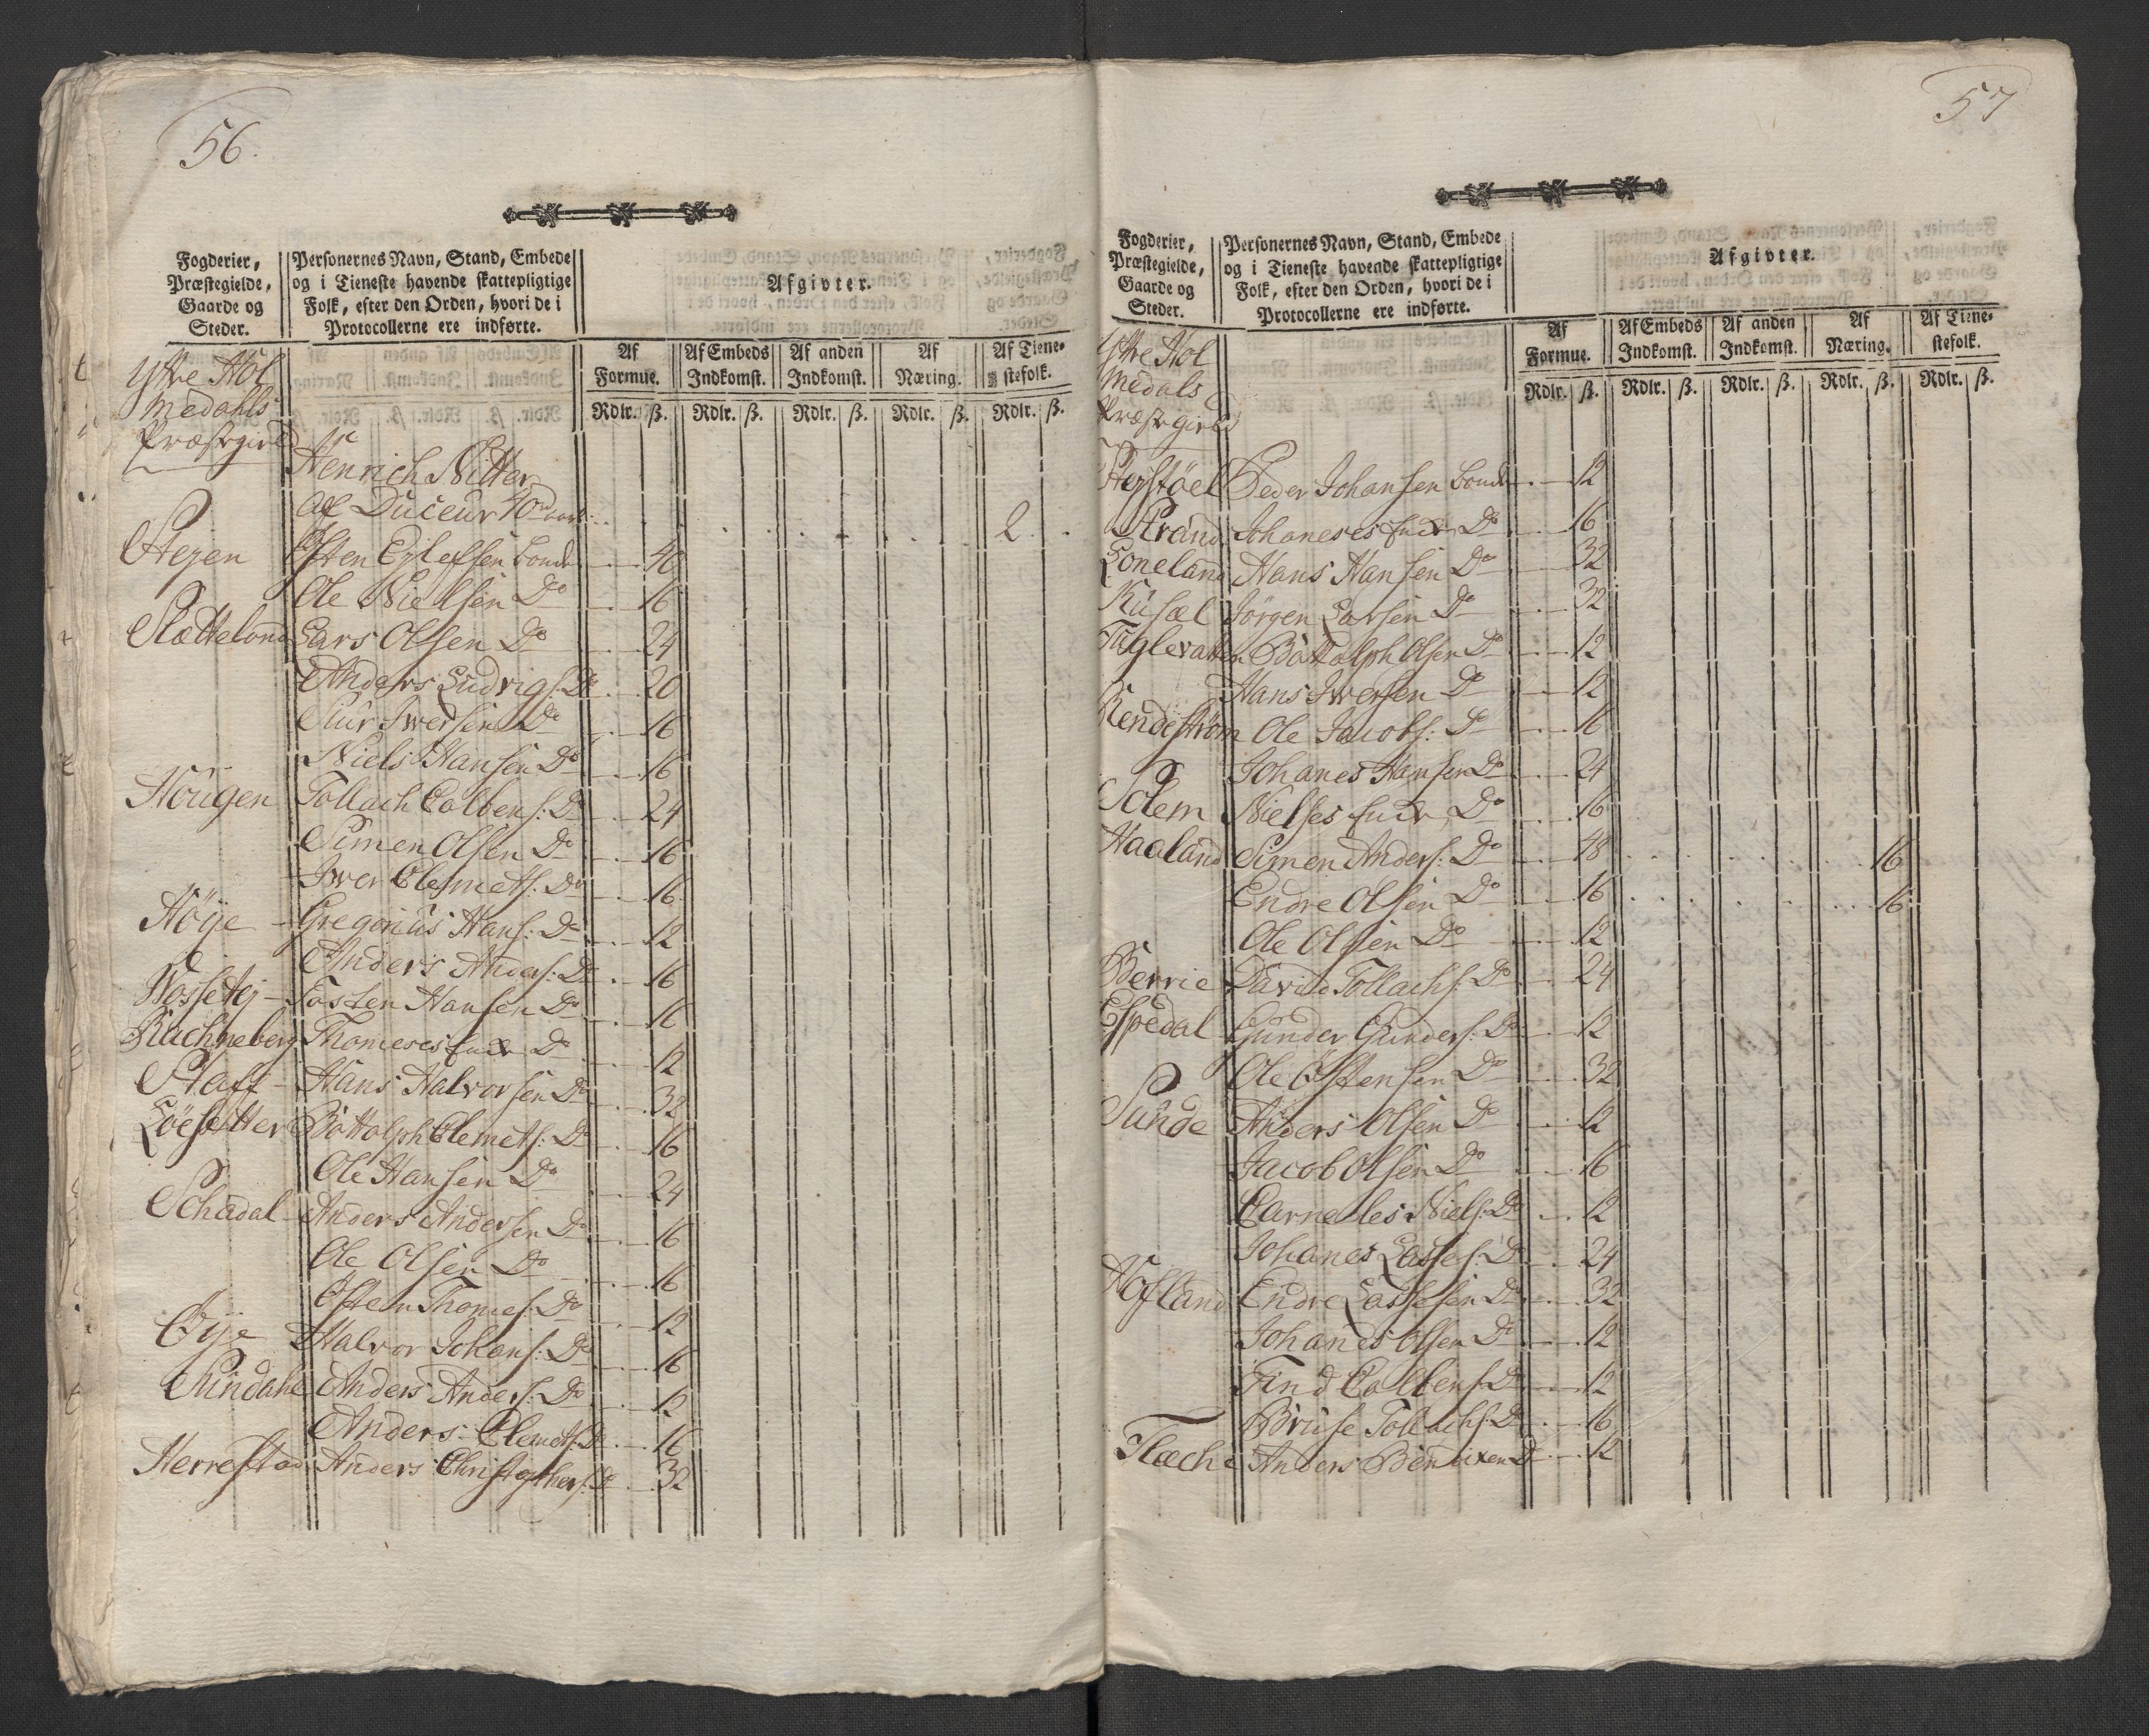 56.
Fogderier,
Præstegielde,
Gaarde og
Steder.
Personernes Navn, Stand, Embede
og i Tieneste havende skattepligtige
Folk, efter den Orden, hvori de i
Protocollerne ere indførte.
Afgivter.
Af
Formue.
Af Embeds
Indkomst.
Af anden
Indkomst.
Af
Næring.
Af Tiene-
stefolk.
Rdlr. ß. Rdlr. ß. Rdlr. ß. Rdlr. ß. Rdlr. ß.
Ytre Hol
medahls
Præstegield
Henrich Nitter
af Duceur 40 2
Stegen Østen Eylefsen bonde 40
Ole Nielsen Do 16
Slætteland Lars Olsen Do 24
Anders Ludvigs: Do 20
Siur Iversen Do 16
Niels Hansen Do 16
Hougen Tollach Colbens: Do 24
Simen Olsen Do 16
Iver Clemets: Do 16
Høye Gregorius Hans: Do 12
Anders Anders: Do 16
Tosten Hansen Do 16
Rachneberg Thomeses Do 12
Staff Hans Halvorsen Do 32
Løesetter Bottolph Clemets: Do 16
Ole Hansen Do 24
Schadal Anders Andersen Do 16
Ole Olsen Do 16
Østen Thomes: Do 12
Øye Halvor Johans: Do 16
Sundahl Anders Anders: Do 12
Anders Clemets: Do 16
Herrestad Anders Christophers: Do 32
57
Fogderier,
Præstegielde,
Gaarde og
Steder.
Personernes Navn, Stand, Embede
og i Tieneste havende skattepligtige
Folk, efter den Orden, hvori de i
Protocollerne ere indførte.
Afgivter.
Af
Formue.
Af Embeds
Indkomst.
Af anden
Indkomst.
Af
Næring.
Af Tiene-
stefolk.
Rdlr. ß. Rdlr. ß. Rdlr. ß. Rdlr. ß. Rdlr. ß.
Ytre Hol
medals
Præstegield
Peder Johansen bonde 12
Strand Johaneses Do 16
Loneland Hans Hansen Do 32
Jørgen Larsen Do 32
Bottolph Olsen Do 12
Hans Iversen Do 12
Rendestrøm Ole Jacobs: Do 16
Johanes Hansen Do 24
Solem Nielses Do 16
Haaland Simen Anders: Do 48 16
Endre Olsen Do 16 16
Ole Olsen Do 12
Berrie David Tollachs: Do 24
Espedal Gunder Gunders: Do 12
Ole Østensen Do 32
Sunde Anders Olsen Do 12
Jacob Olsen Do 16
Carneles Niels: Do 12
Johanes Lasses: Do 24
Hofland Endre Lassesen Do 32
Johanes Olsen Do 12
Find Colbens: Do 12
Bruse Tollachs: Do 16
Flæche Anders Bendixen Do 12